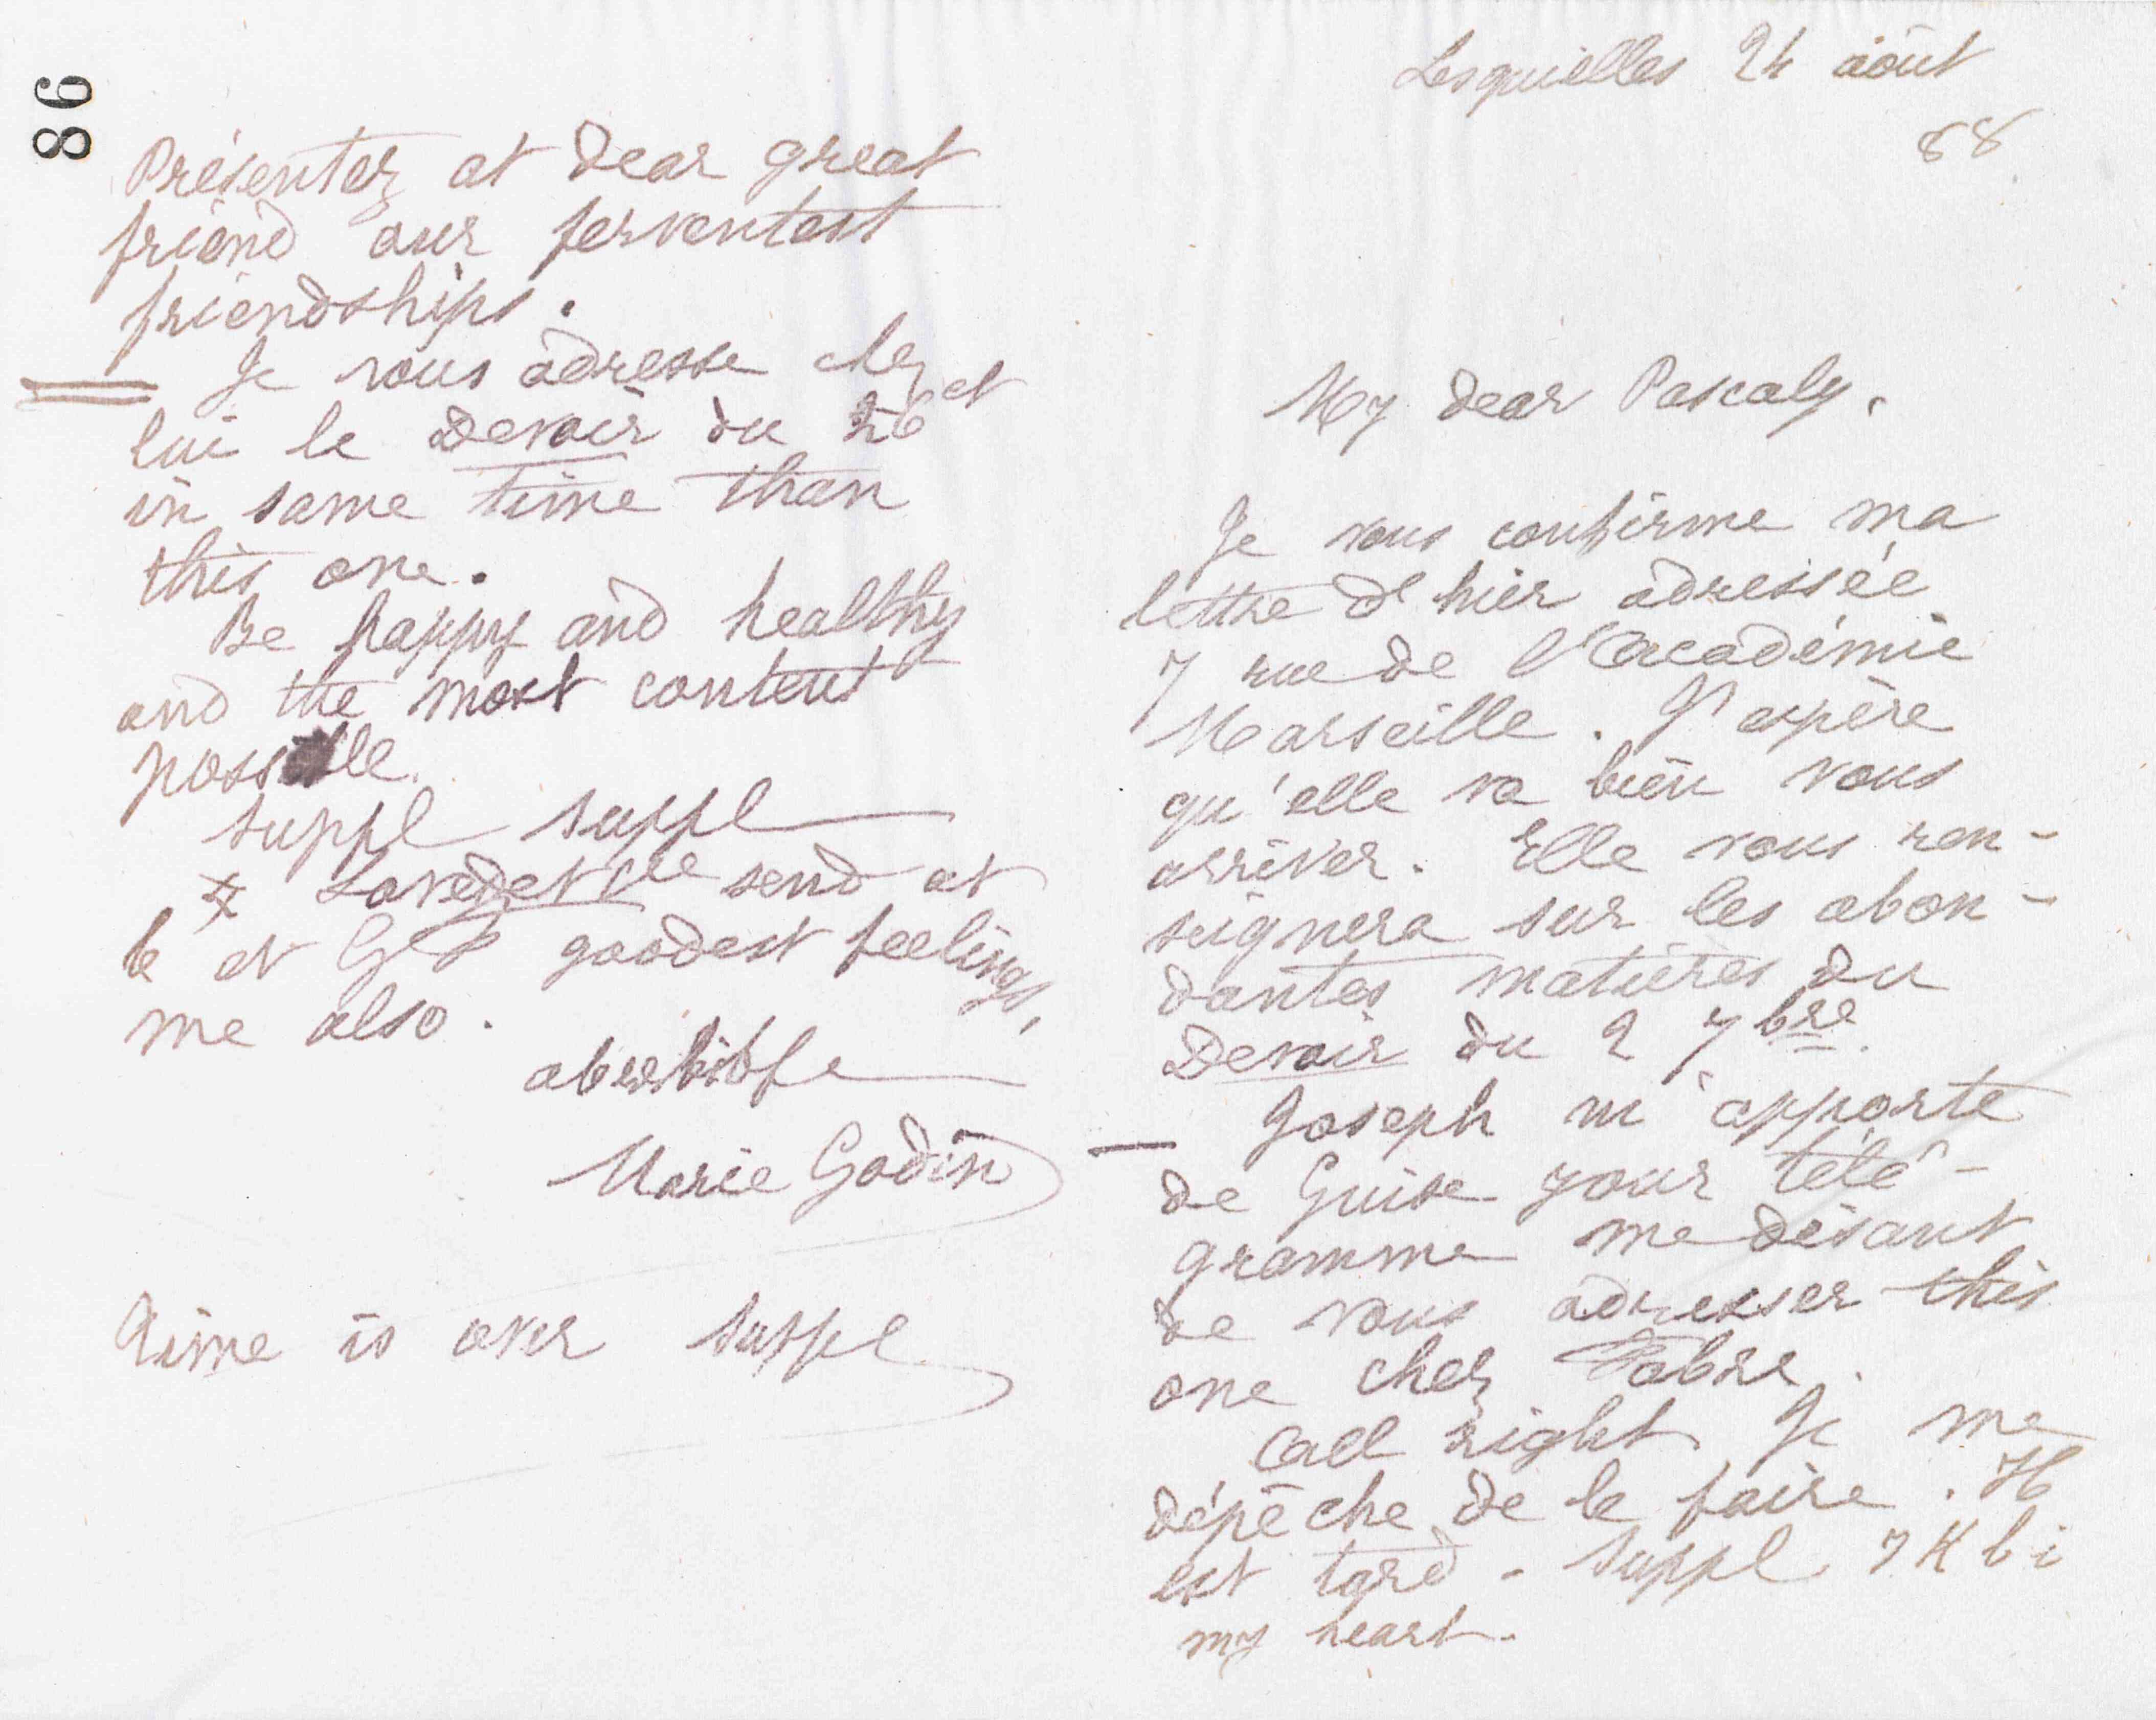 Lesquielles 24 août
88
My dear Pascaly.
Je vous confirme ma
lettre d'hier adressée
7 rue de l'Académie
Marseille. J'espère
qu'elle va bien vous
arriver. Elle vous ren-
seignera sur les abon-
dantes matières du
Devoir du 2 7bre.
Joseph m'apporte
de Guise your télé-
gramme me disant
de vous adresser this
one chez Fabre.
All right. Je me
dépêche de le faire. Il
est tard. Suppl 74 bi
my heart.
86
Présentez at dear great
friend our ferventest
friendships.
Je vous adresse chez
lui le Devoir du 26 ct
in same time than
this one.
Be happy and healthy
and the most content
possible.
suppl suppl
send at
b at GP goodest feelings,
me also.
Marie Godin
Time is over suppl